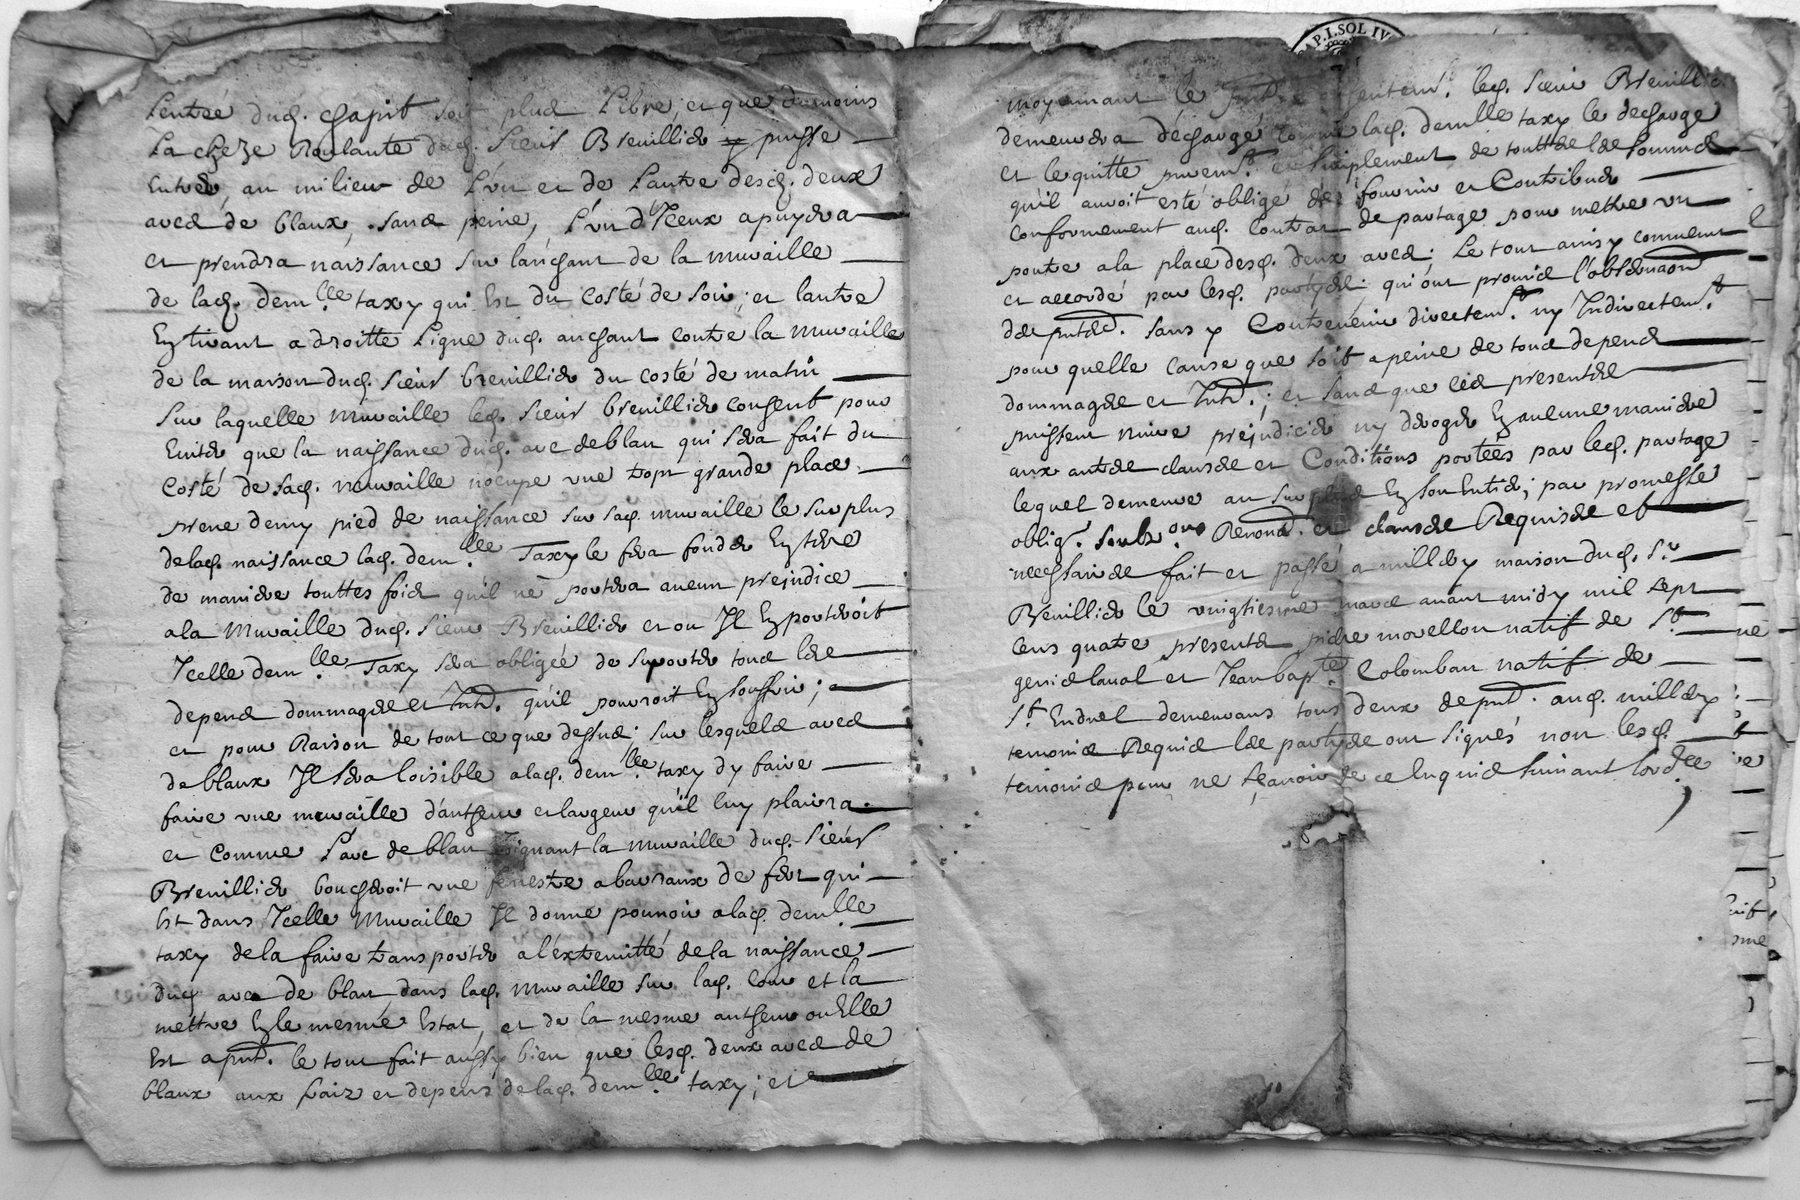 Lentreé dud. chapit soit plus Libre, et que dumoins
La cheze Roulante dud. Sieur Breuillier puisse
Entrer, au milieu de L'un et de Lautre desd. deux
arcs de blaux, sans peine, L'un d'Iceux apuyera
et prendra naissance sur lanchant de la muraille
de lad. demlle. taxy qui Est du costé de soir, et lautre
En tirant a droitte Ligne dud. anchant contre la muraille
de la maison dud. Sieur breuillier du costé de matin
Sur laquelle muraille led. Sieur breuillier consent pour
Eviter que la naissance dud. arc de blau qui sera fait du
costé de sad. muraille nocupe une trop grande place
prene demy pied de naissance sur sad. muraille le surplus
de lad. naissance lad. demlle. Taxy le fera fonder En terre
de maniere touttes fois qu'il ne portera aucun prejudice
a la Muraille dud. Sieur Breuillier et ou Il En porteroit
Icelle demlle. Taxy sera obligée de suporter tous les
depens dommages et Intr. qu'il pourroit En souffrir;
et pour Raison de tout ce que dessus; sur lesquels arcs
de blaux Il sera loisible a lad. demlle. taxy dy faire
faire une muraille d'autheur et largeur qu'il luy plaira.
et comme L'arc de blau joignant la muraille dud. Sieur
Breuillier boucheroit une fenestre a barraux de fer qui
Est dans Icelle Muraille Il donne pouvoir a lad. demlle.
taxy de la faire transporter a l'extremitté de la naissance
dud arc de blau dans lad. muraille sur lad. cour et la
mettre En le mesme Estat, et de la mesme autheur ou Elle
Est a pnt. le tout fait aussy bien que lesd. deux arcs de
blaux aux fraiz et depens de lad. demlle. taxy; et
moyennant le led. sieur Breuillier
demeurera déchargé comme lad. demlle taxy le decharge
et le quitte purem.t et simplement de toutte les sommes
qu'il auroit esté obligé de fournir et Contribuer
conformement aud. Contrat de partage pour mettre un
poutre a la place desd. deux arcs; Le tout ainsy convenu
et accordé par lesd. partyes; qui ont promis l'observaon
des pntes. sans y Contrevenir directem.t ny Indirectem.t
pour quelle cause que soit a peine de tous depens
dommages et Intr.; et sans que ces presentes
puissent nuire prejudicier ny deroger En aucune maniere
aux autres clauses et Conditions portées par led. partage
lequel demeure au surplus En son Entier; par promesse
oblig.r Renona. et clauses Requises et
necessaires fait et passé a milley maison dud. Sr
Breuillier le vingtiesme mars avant midy mil sept
cens quatre presents pierre morellon natif de St
genis laval et Jean bapte. Colomban natif de
St. Enduel demeurans tous deux de pnt. aud. milley
temoins Requis les partyes ont signés non lesd.
temoins pour ne sçavoir de ce Enquis suivant lordce